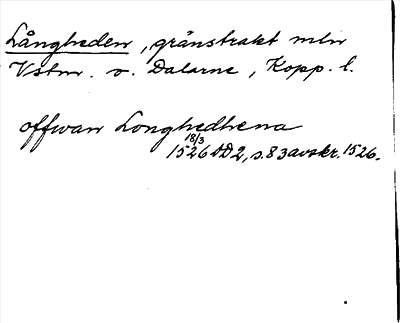 Långheden, gränstrakt mln
Vstm. o. Dalarne, Kopp. l.
offwan Longhedhena
18/3
1526 DD2, s. 83 avskr. 1526.